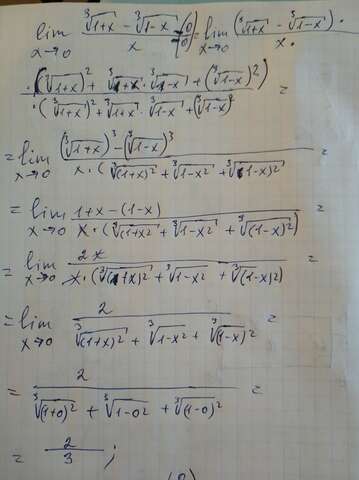 lim x→0 (∛1+x - ∛1-x)/x = (0/0) = lim x→0 ((∛1+x - ∛1-x) ·)/(x ·
· ((∛1+x)² + ∛1+x · ∛1-x + (∛1-x)²)/· ((∛1+x)² + ∛1+x · ∛1-x + (∛1-x)²) =
= lim x→0 ((∛1+x)³ - (∛1-x)³)/(x · (∛(1+x)² + ∛1-x² + ∛(1-x)²) =
= lim x→0 (1+x - (1-x))/(x · (∛(1+x²) + ∛1-x² + ∛(1-x)²) =
= lim x→0 2x/(x · (∛(1+x)² + ∛1-x² + ∛(1-x)²) =
= lim x→0 2/(∛(1+x)² + ∛1-x² + ∛(1-x)²) =
= 2/(∛(1+0)² + ∛1-0² + ∛(1-0)²) =
= 2/3 ;